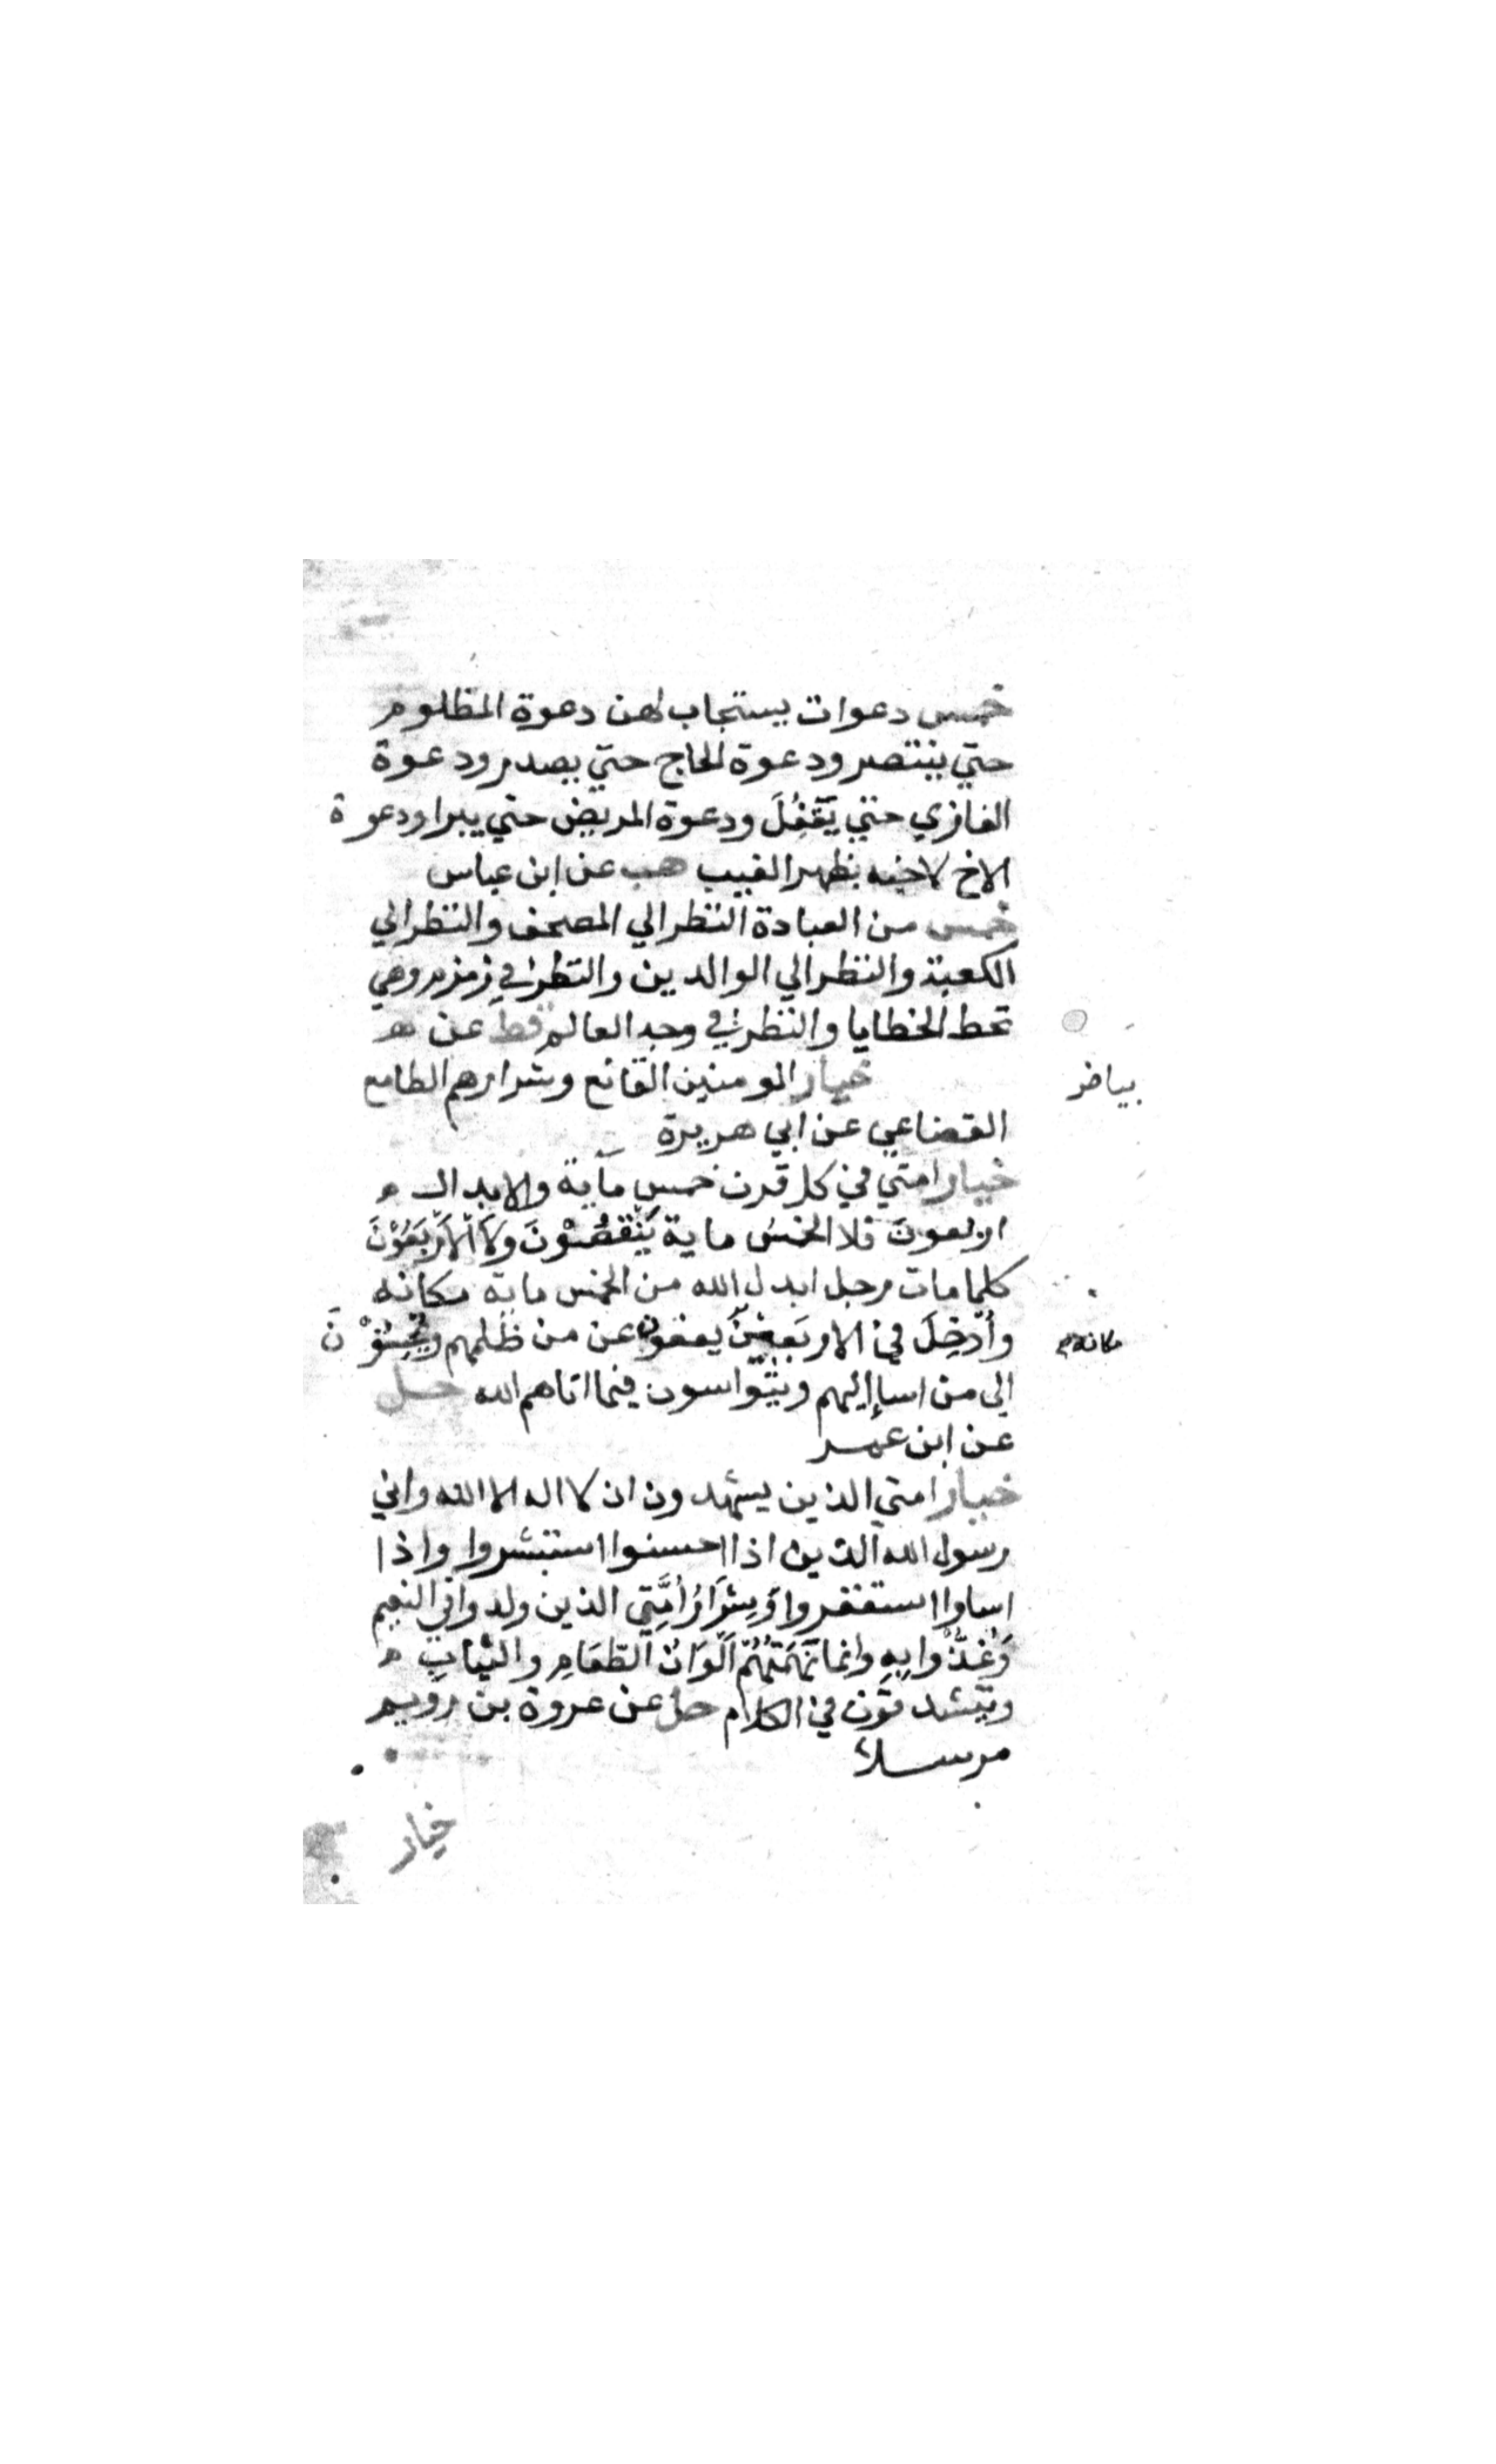 خمس دعوات يستجاب لهن دعوة المظلوم
حتي ينتصر ودعوة الحاج حتي يصدر ودعوة
الغازي حتي يَقْفُلَ ودعوة المريض حتي يبرا ودعوة
الاخ لاخيه بظهر الغيب هب عن ابن عباس
خمس من العبادة النظر الي المصحف والنظر الي
الكعبة والنظر الي الوالدين والنظر في زمزم وهي
تحط الخطايا والنظر في وجه العالم قط عن هـ
بياض
خيار المومنين القانع وشرارهم الطامع
القضاعي عن ابي هريرة
خيار امتي في كل قرن خمس مآية والابدال
اربعونَ فلا الخمسُ ماية يَنْقُصُوْنَ ولَا الْاَرْبَعُوْنَ
كلما مات رجل ابدل الله من الخمس ماية مكانه
وأُدْخِلَ في الاربَعِيْنَ يعفون عن من ظلمهم ويُحْسِنُوْنَ
مكانهم
الي من اسا إليهم ويَتَواسون فيما اتاهم الله حل
عن ابن عمر
خيار امتي الذين يشهدون ان لا اله الا الله واني
رسول الله الذين اذا احسنوا استبشروا واذا
اساوا استغفروا وَشِرَارُ اُمَّتِي الذين ولدوا في النعيم
وَغُذُّوْا بِهِ وانما نَهْمَتُهُمْ اَلْوَانُ الطَّعَامِ والثيابِ
ويتشدقون في الكلام حل عن عروة بن رويم
مرسلا
خيار